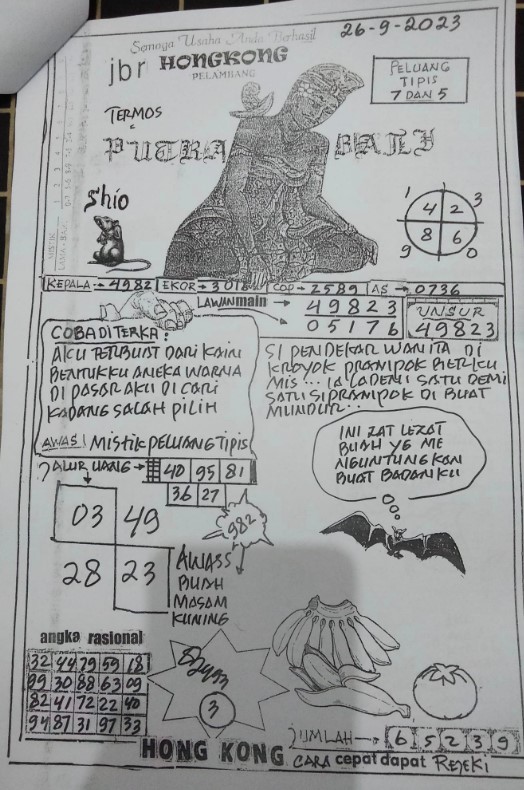 Semoga Usaha Anda Berhasil
26-9-2023
jbr HONGKONG
PELAMBANG
PELUANG
TIPIS
7 DAN 5
TERMOS
PUTRA BALI
Shio
1 3
4 2
8 6
9 0
KEPALA → 4982 EKOR → 3018 COP → 2589 AS → 0736
LAWAN main → 49823
05176
UNSUR
49823
COBA DITERKA:
AKU TERBUAT DARI KAIN
BENTUKKU ANEKA WARNA
DI PASAR AKU DI CARI
KADANG SALAH PILIH
AWAS! MISTIK PELUANG TIPIS
SI PENDEKAR WANITA DI
KROYOK PRAMPOK BERKU
MIS... IA LADENI SATU DEMI
SATU SI PRAMPOK DI BUAT
MUNDUR..
JALUR UANG → 40 95 81
36 27
INI ZAT LEZAT
BUAH YG ME
NGUNTUNGKAN
BUAT BADANKU
03 49
28 23
982
AWASS
BUAH
MASAM
KUNING
angka rasional
32 44 79 59 18
89 30 88 63 09
82 41 72 22 40
94 87 31 97 33
3
JUMLAH → 6 5 2 3 9
HONG KONG CARA cepat dapat REJEKI